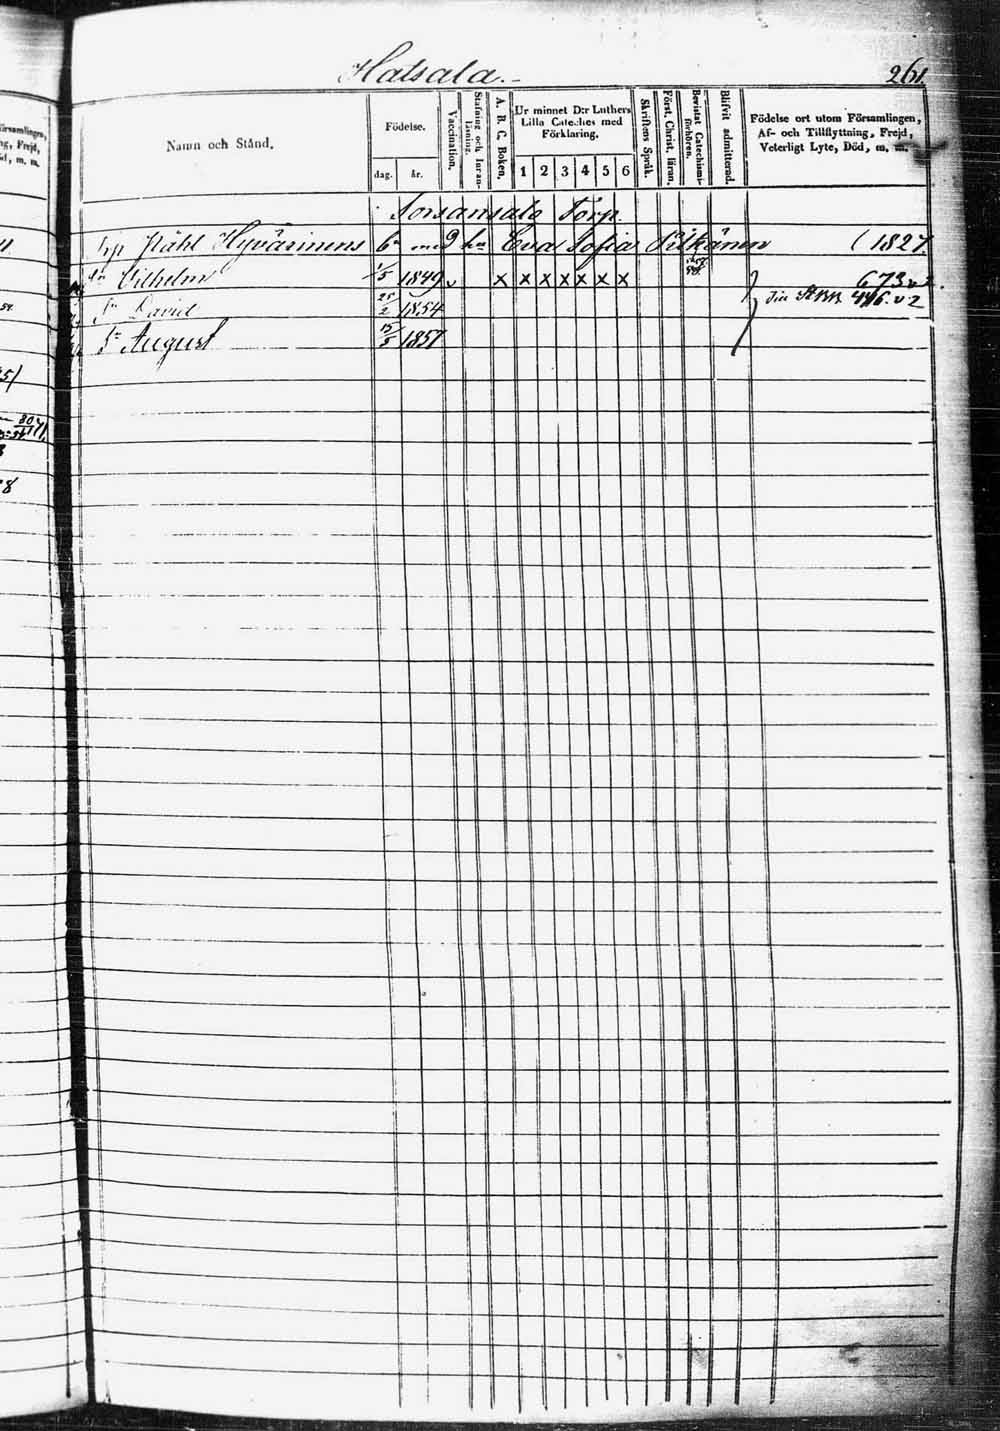 Halsala.
261.
Namn och Stånd.
Födelse.
dag.
år.
Vaccination.
Stafning och Innan-läsning.
A. B. C. Boken.
Ur minnet D:r Luthers
Lilla Cateches med
Förklaring.
1 2 3 4 5 6
Skriftens Språk.
Först. Christ. läran.
Bevistat Catechismi-förhören.
Blifvit admitterad.
Födelse ort utom Församlingen,
Af- och Tillflyttning, Frejd,
Veterligt Lyte, Död, m. m.
Torp.
Ståhl Hyvärinens bn med hu Eva Sofia Pitkänen (1827.
Sn Vilhelm 1/5 1849 v x x x x x x x 673
Sn David 25/2 1854
Sn August 15/5 1857